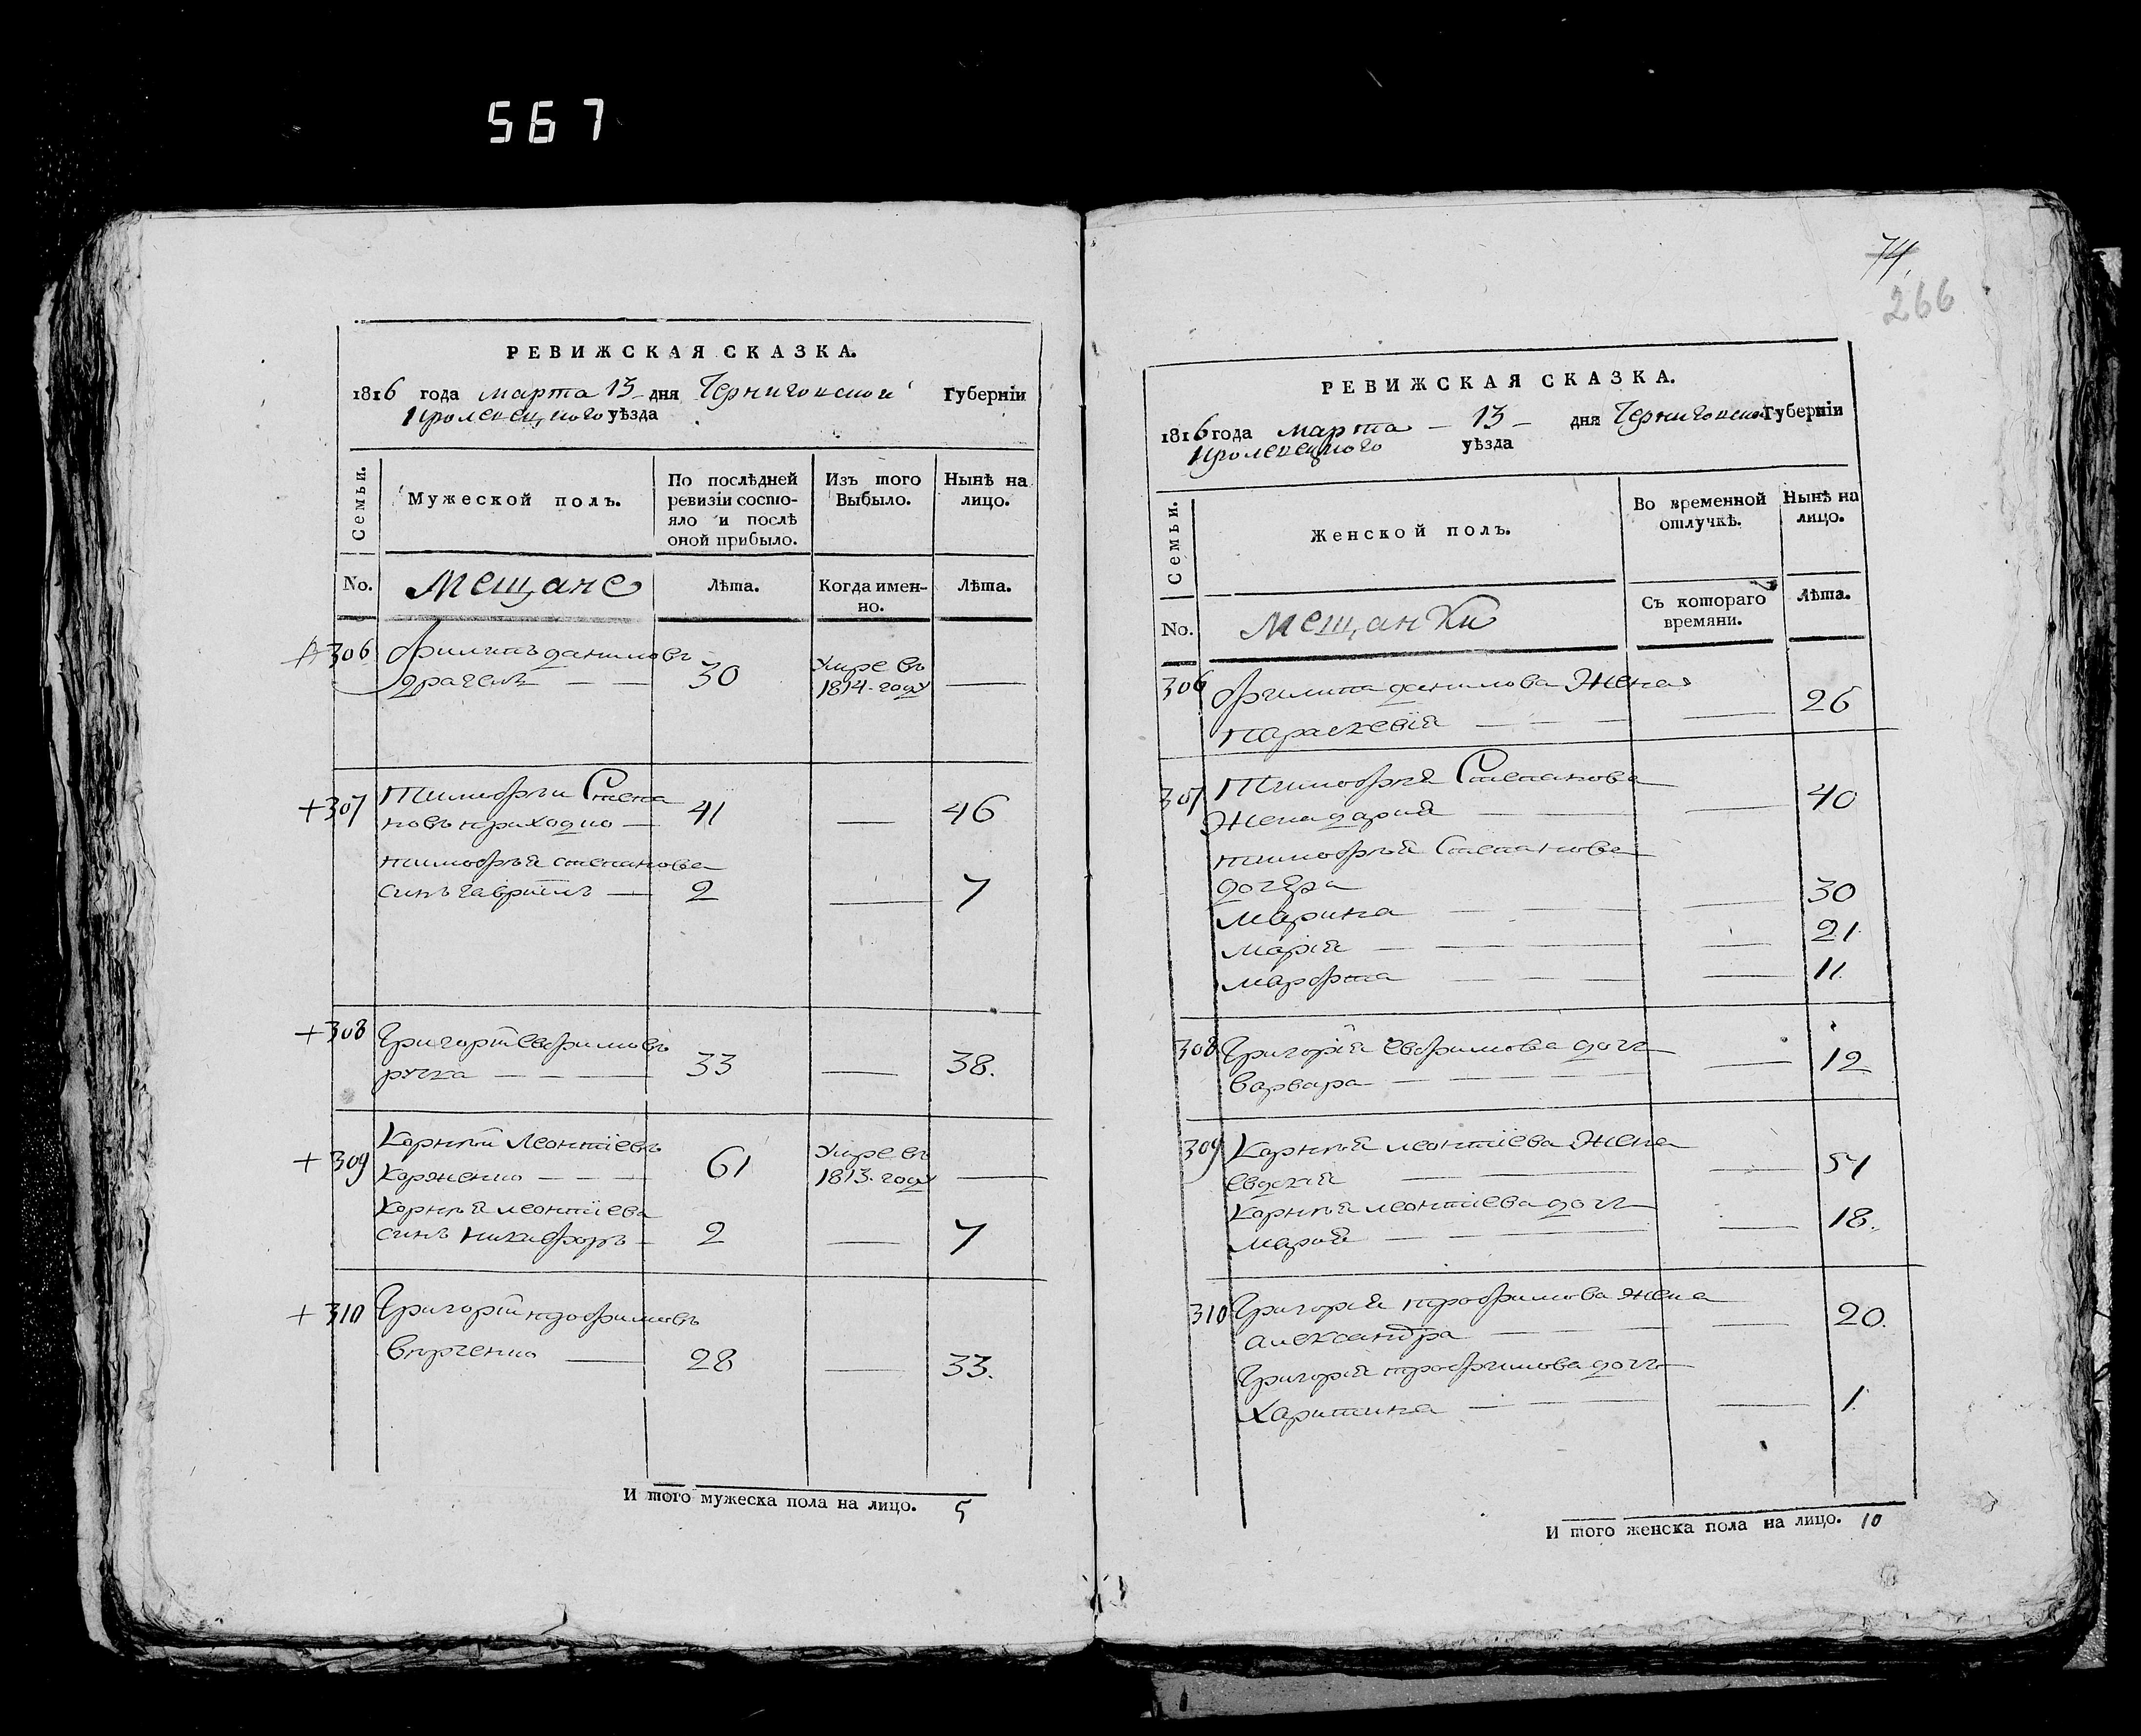 567
РЕВИЖСКАЯ СКАЗКА.
1816 года марта 13 дня Черниговской Губерніи
Кролевецкого уѣзда
Семьи.
Мужеской полъ.
По послѣдней ревизіи состояло и послѣ оной прибыло.
Изъ того Выбыло.
Нынѣ на лицо.
No. Мещане Лѣта. Когда именно. Лѣта.
306 Филипъ даниловъ
30 Умре въ 1814. году —
+307 Тимофѣи Степа
новъ приходко — 41 — 46
тимофѣя степанова
синъ гавріилъ — 2 — 7
+308 Григорій евфимовъ
ручка — — — 33 — 38.
+309 Корнѣй леонтіевъ
Корженко — — — 61 Умре въ 1813. году —
Корнѣя леонтіева
синъ никифоръ — 2 — 7
+310 Григорій трофимовъ
28 — 33.
И того мужеска пола на лицо. 5
74
266
РЕВИЖСКАЯ СКАЗКА.
1816 года марта — 13 — дня Черниговской Губерніи
Кролевецкого уѣзда
Семьи.
Женской полъ.
Во временной отлучкѣ.
Нынѣ на лицо.
No. Мещанки Съ котораго времяни. Лѣта.
306 Филипа данилова Жена
параскевія — — — — 26
307 Тимофѣя Степанова
Жена дарія — — — 40
тимофѣя Степанова
дочера
Марина — — — — 30
марія — — — — 21
марфта — — — — 11
308 Григорія евфимова дочь
варвара — — — — 12
309 Корнѣя леонтіева Жена
евдокія — — — 54
Корнѣя леонтіева дочь
марія — — — — 18.
310 Григорія трофимова жена
александра — — — — 20.
Григорія трофимова дочь
Харитина — — — — 1.
И того женска пола на лицо. 10